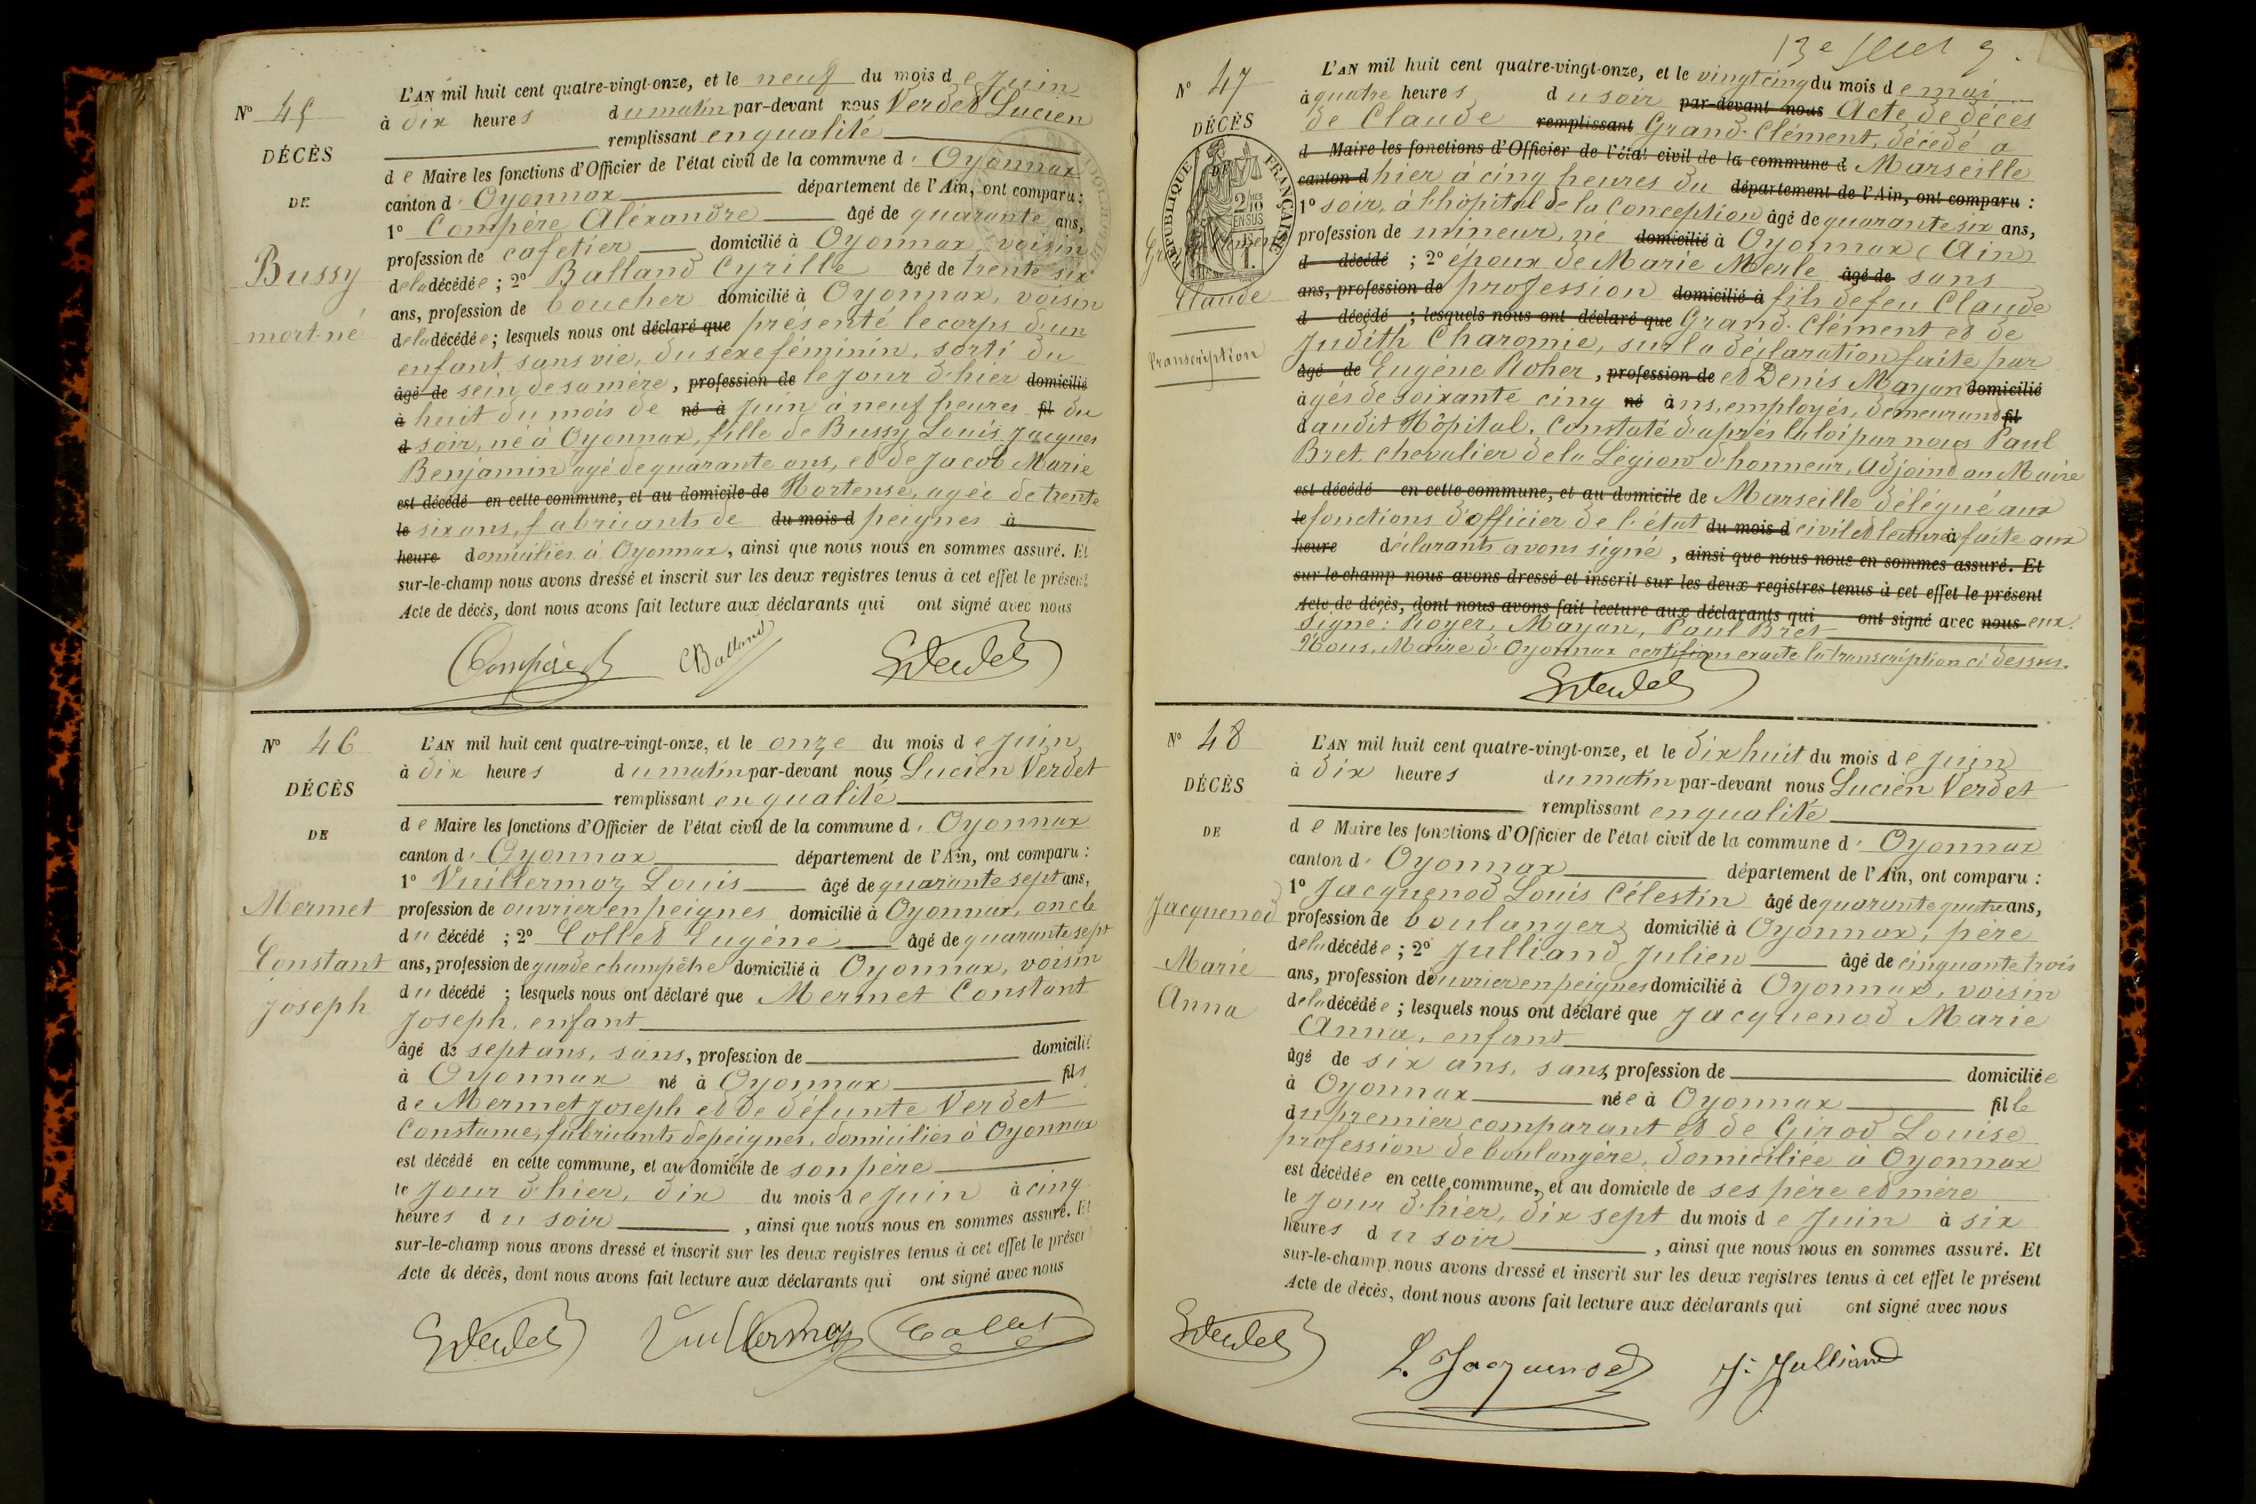 N° 45
DÉCÈS
DE
Bussy
mort-né
L'AN mil huit cent quatre-vingt-onze, et le neuf du mois de Juin
à dix heures du matin par-devant nous Verdet Lucien
remplissant en qualité
de Maire les fonctions d'Officier de l'état civil de la commune d' Oyonnax
canton d' Oyonnax département de l'Ain, ont comparu :
1° Compère Aléxandre âgé de quarante ans,
profession de cafetier domicilié à Oyonnax, voisin
de la décédée ; 2° Balland Cyrille âgé de trente six
ans, profession de boucher domicilié à Oyonnax, voisin
de la décédée ; lesquels nous ont déclaré que présenté le corps d'un
enfant sans vie, du sexe féminin, sorti du
âgé de sein de sa mère, profession de le jour d'hier domicilié
à huit du mois de né à Juin à neuf heures fil du
d soir, né à Oyonnax, fille de Bussy Louis Jacques
Benjamin agé de quarante ans, et de Jacob Marie
est décédé en cette commune, et au domicile de Hortense, agée de trente
le six ans, fabricants de du mois d peignes à
heure domiciliés à Oyonnax, ainsi que nous nous en sommes assuré. Et
sur-le-champ nous avons dressé et inscrit sur les deux registres tenus à cet effet le présent
Acte de décès, dont nous avons fait lecture aux déclarants qui ont signé avec nous
Compère A CBalland Verdet
N° 46
DÉCÈS
DE
Mermet
Constant
Joseph
L'AN mil huit cent quatre-vingt-onze, et le onze du mois de Juin
à dix heures du matin par-devant nous Lucien Verdet
remplissant en qualité
de Maire les fonctions d'Officier de l'état civil de la commune d' Oyonnax
canton d' Oyonnax département de l'Ain, ont comparu :
1° Vuillermoz Louis âgé de quarante sept ans,
profession de ouvrier en peignes domicilié à Oyonnax, oncle
du décédé ; 2° Collet Eugène âgé de quarante sept
ans, profession de garde champêtre domicilié à Oyonnax, voisin
du décédé ; lesquels nous ont déclaré que Mermet Constant
Joseph, enfant
âgé de sept ans, sans, profession de domicilié
à Oyonnax né à Oyonnax fils
de Mermet Joseph et de défunte Verdet
Constance, fabricants de peignes, domiciliés à Oyonnax
est décédé en cette commune, et au domicile de son père
le jour d'hier, dix du mois de Juin à cinq
heures du soir, ainsi que nous nous en sommes assuré. Et
sur-le-champ nous avons dressé et inscrit sur les deux registres tenus à cet effet le présent
Acte de décès, dont nous avons fait lecture aux déclarants qui ont signé avec nous
Verdet Vuillermoz Collet
13e
N° 47
DÉCÈS
RÉPUBLIQUE FRANÇAISE
Claude
transcription
L'AN mil huit cent quatre-vingt-onze, et le vingt cinq du mois de mai
à quatre heures du soir par-devant nous Acte de décès
de Claude remplissant Grand-Clément, décédé à
d Maire les fonctions d'Officier de l'état civil de la commune d Marseille
canton d hier à cinq heures du département de l'Ain, ont comparu :
1° soir, à l'hôpital de la Conception âgé de quarante six ans,
profession de mineur, né domicilié à Oyonnax (Ain)
d décédé ; 2° époux de Marie Merle âgé de sans
ans, profession de profession domicilié à fils de feu Claude
d décédé ; lesquels nous ont déclaré que Grand-Clément et de
Judith Charomie, sur la déclaration faite par
âgé de Eugène Roher, profession de et Denis Mayan domicilié
àgés de soixante cinq né àns, employés, demeurant fil
d audit Hôpital. Constaté d'après la loi par nous Paul
Bret chevalier de la Légion d'honneur, Adjoint au Maire
est décédé en cette commune, et au domicile de Marseille délégué aux
le fonctions d'officier de l'état du mois d civil et lecture à faite aux
heure déclarants avons signé, ainsi que nous nous en sommes assuré. Et
sur-le-champ nous avons dressé et inscrit sur les deux registres tenus à cet effet le présent
Acte de décès, dont nous avons fait lecture aux déclarants qui ont signé avec nous eux.
Signé : Royer, Mayan, Paul Bret
Nous, Maire d'Oyonnax certifions exacte la transcription ci dessus.
Verdet
N° 48
DÉCÈS
DE
Jacquenod
Marie
Anna
L'AN mil huit cent quatre-vingt-onze, et le dix huit du mois de Juin
à dix heures du matin par-devant nous Lucien Verdet
remplissant en qualité
de Maire les fonctions d'Officier de l'état civil de la commune d' Oyonnax
canton d' Oyonnax département de l'Ain, ont comparu :
1° Jacquenod Louis Célestin âgé de quarante quatre ans,
profession de boulanger domicilié à Oyonnax, père
de la décédée ; 2° Julliand Julien âgé de cinquante trois
ans, profession de ouvrier en peignes domicilié à Oyonnax, voisin
de la décédée ; lesquels nous ont déclaré que Jacquenod Marie
Anna, enfant
âgé de six ans, sans, profession de domiciliée
à Oyonnax née à Oyonnax fille
du premier comparant et de Girod Louise
profession de boulangère, domiciliée à Oyonnax
est décédée en cette commune, et au domicile de ses père et mère
le jour d'hier, dix sept du mois de Juin à six
heures du soir, ainsi que nous nous en sommes assuré. Et
sur-le-champ nous avons dressé et inscrit sur les deux registres tenus à cet effet le présent
Acte de décès, dont nous avons fait lecture aux déclarants qui ont signé avec nous
Verdet L. Jacquenod J. Julliand